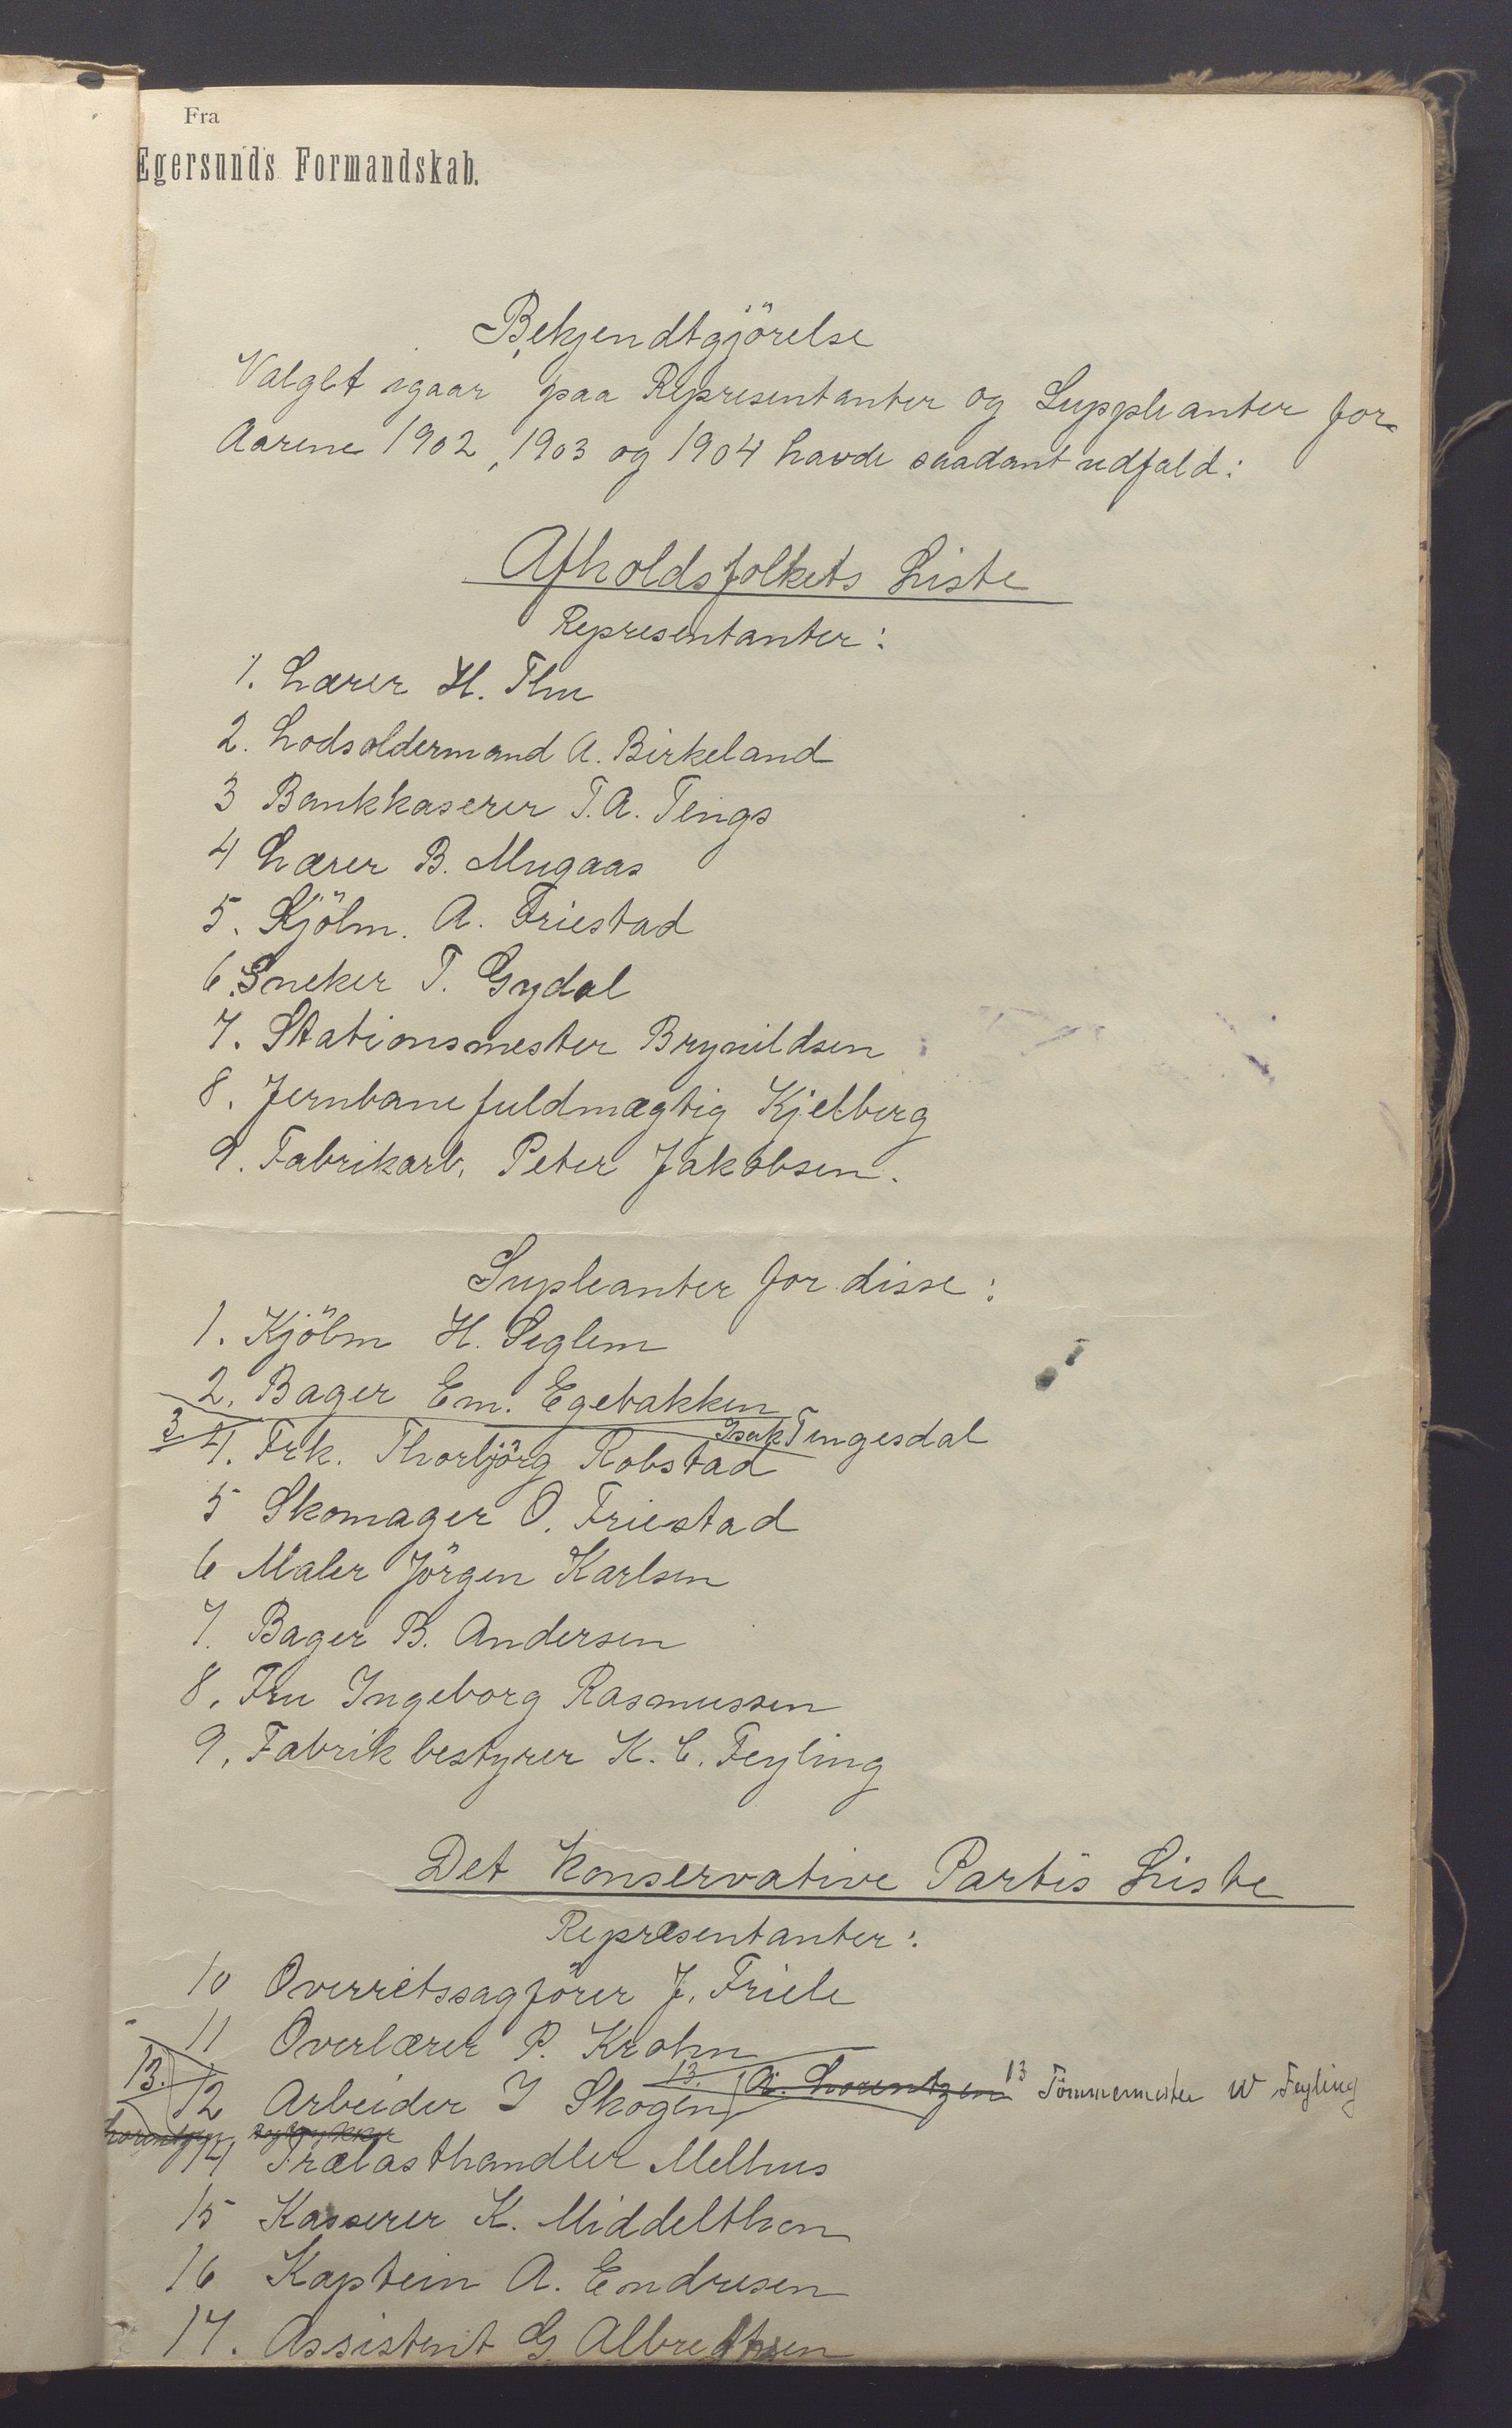 Fra
Egersunds Formandskab.
Bekjendtgjörelse
Valget igaar paa Representanter og Suppleanter for
Aarene 1902, 1903 og 1904 havde saadant udfald:
Afholdsfolkets Liste
Representanter:
1. Lærer H. Thu
2. Lodsoldermand A. Birkeland
3 Bankkaserer T. A. Tengs
4 Lærer B. Mugaas
5. Kjölm. A. Friestad
6. Sneker T. Gydal
7. Stationsmester Brynildsen
8. Jernbanefuldmægtig Kjelberg
9. Fabrikarb. Peter Jakobsen.
Supleanter for disse:
1. Kjölm H. Seglem
2. Bager Em. Egebakken
3. Isak Tingesdal
4. Frk. Thorbjörg Robstad
5 Skomager O. Friestad
6 Maler Jörgen Karlsen
7. Bager B. Andersen
8. Fru Ingeborg Rasmussen
9. Fabrikbestyrer K. C. Feyling
Det Konservative Partis Liste
Repræsentanter:
10 Overretssagförer J. Friele
11 Overlærer P. Krohn
13. 12 Arbeider I Skogen 13. A. Lorentzen 13 Tömmermester W Feyling
Lorentzen
14 Trælasthandler Melhus
15 Kasserer K. Middelthon
16 Kaptein A. Endresen
17. Assistent G Albrethsen